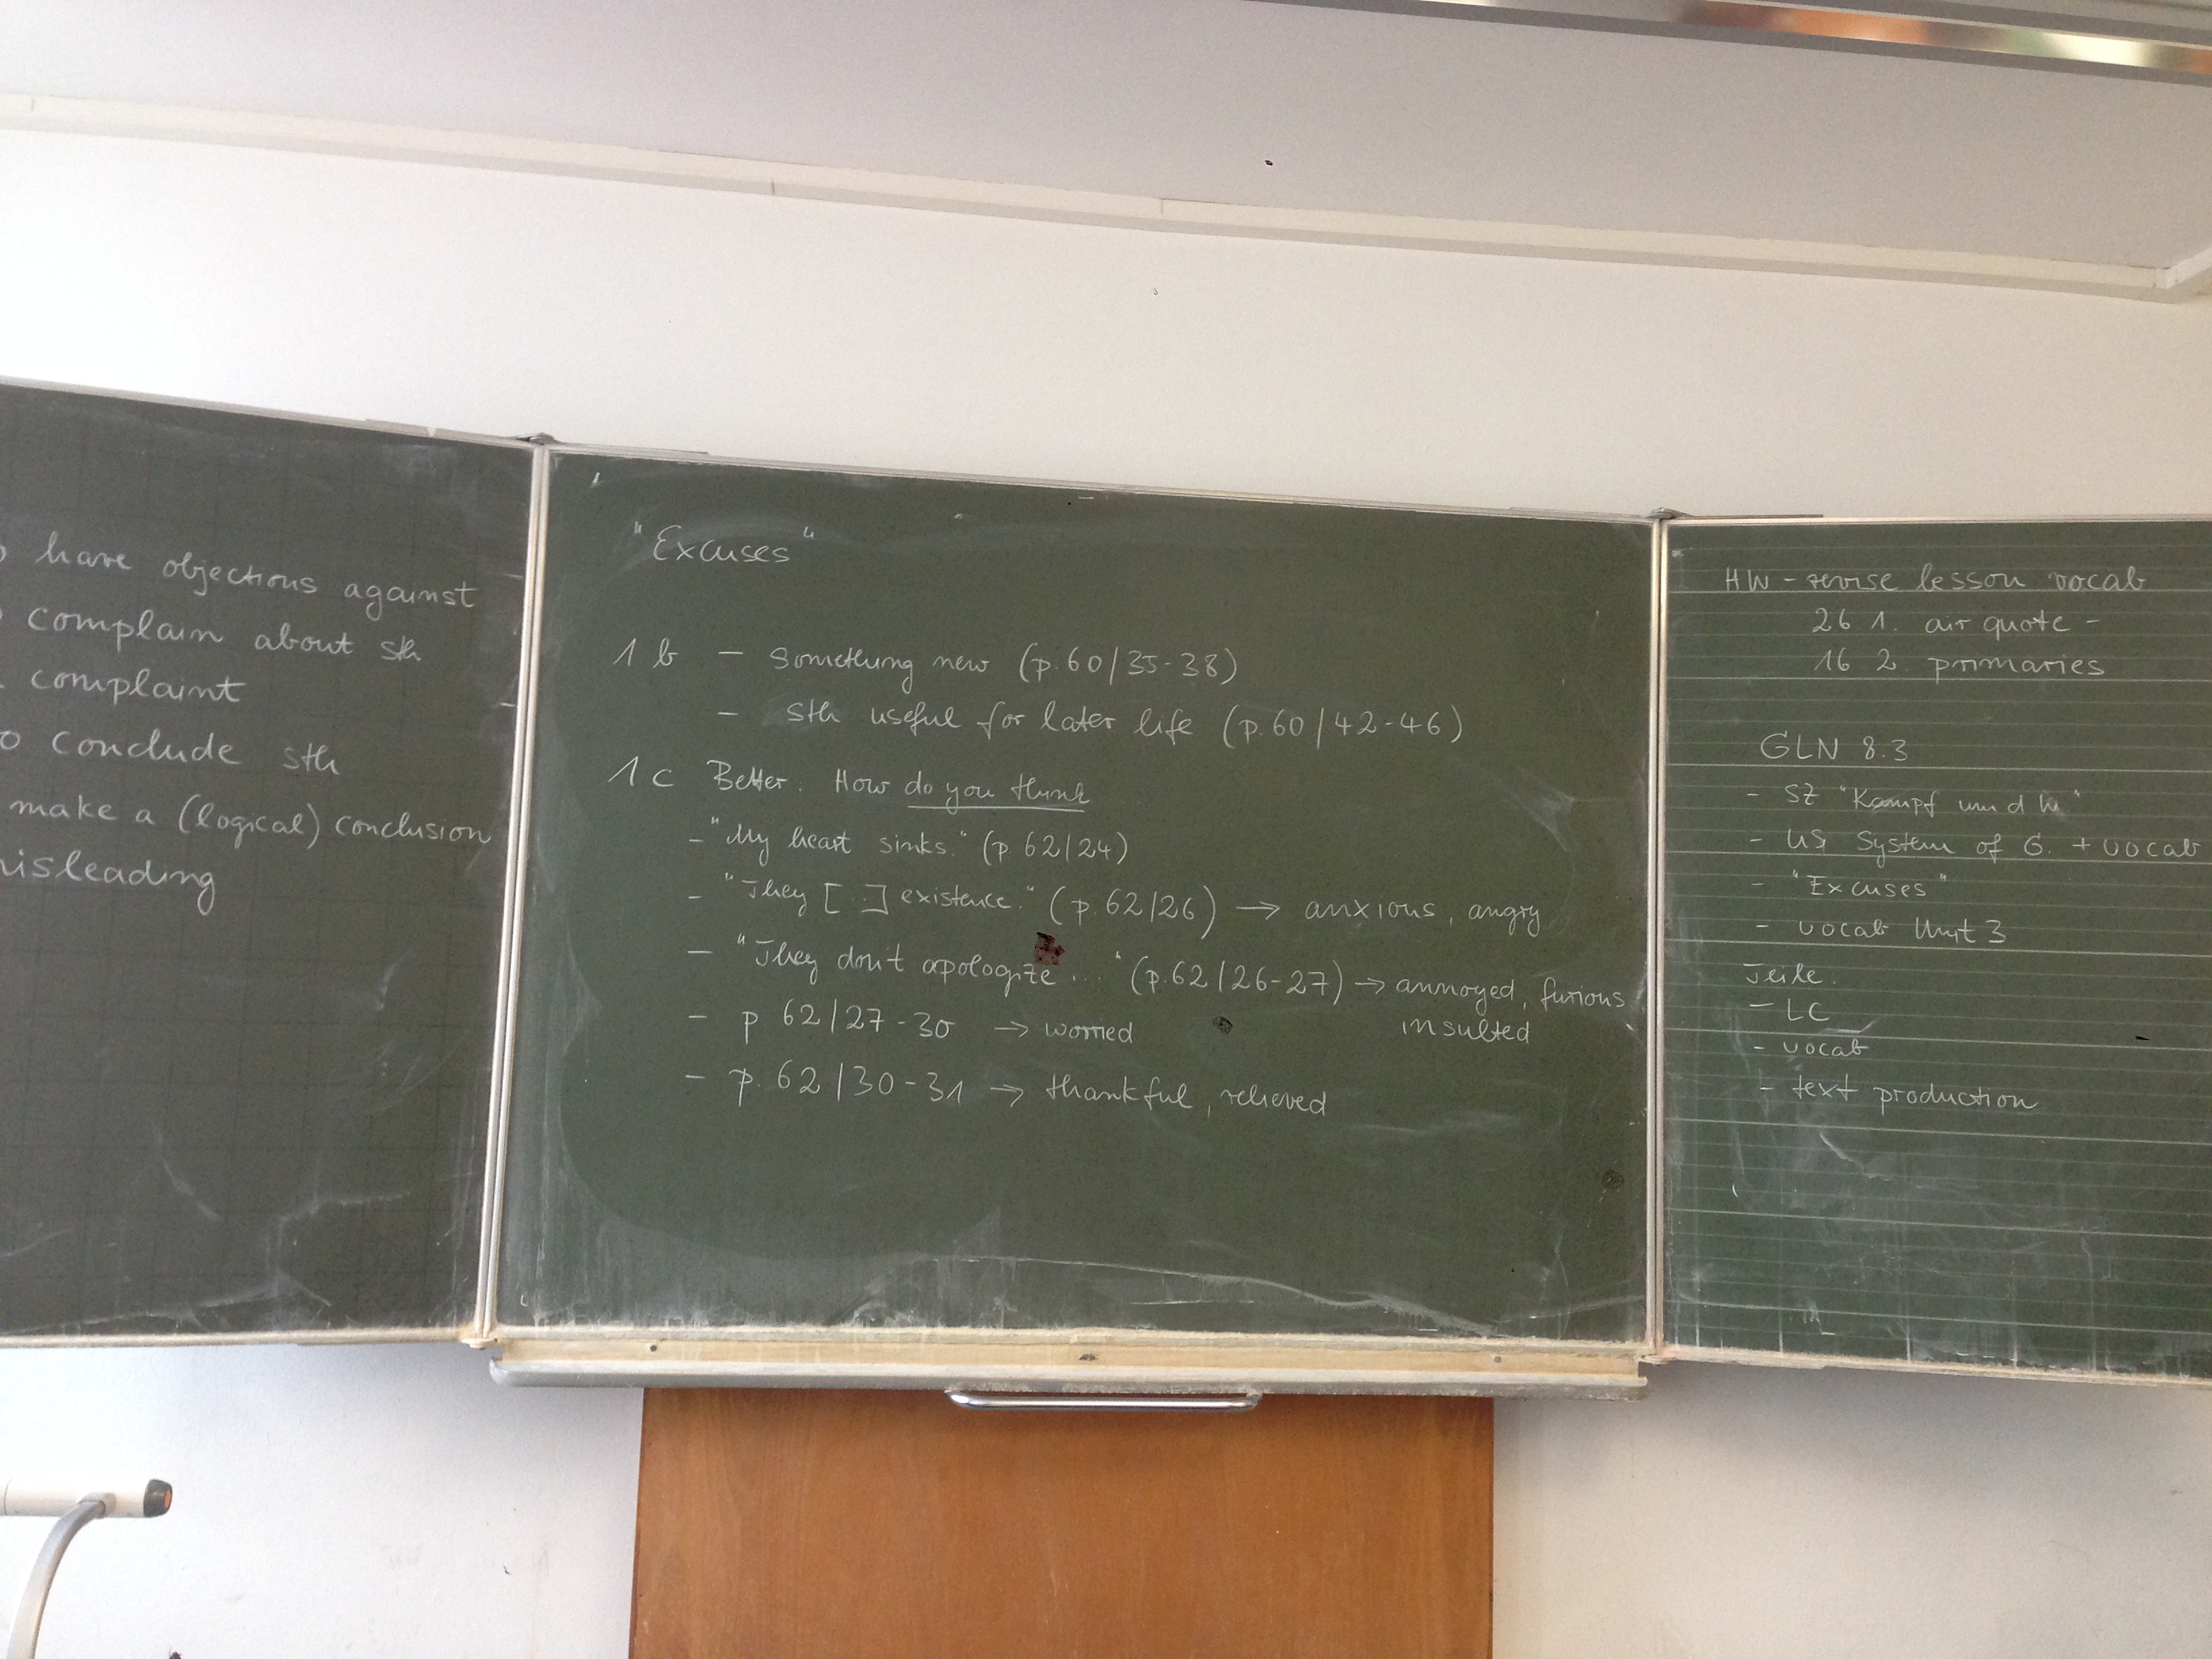 have objections against
complain about sth
complaint
o conclude sth
make a (logical) conclusion
isleading
"Excuses"
1 b - something new (p. 60/35-38)
- sth useful for later life (p. 60/42-46)
1 c Better: How do you think
- "My heart sinks." (p. 62/24)
- "They [...] existence." (p. 62/26) → anxious, angry
- "They don't apologize..." (p. 62/26-27) → annoyed, furious
insulted
- p 62/27-30 → worried
- p. 62/30-31 → thankful, relieved
HW - revise lesson vocab
26 1. air quote -
16 2. primaries
GLN 8.3
- SZ "Kampf um d W"
- US System of G. + vocab
- "Excuses"
- vocab Unit 3
Teile:
- LC
- vocab
- text production